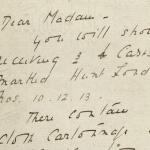 Dear Madam -
You will sho
receiving 3 Cases
marked Hunt Lond
Nos. 10. 12. 13.
These contain
Cloth Cartonnage